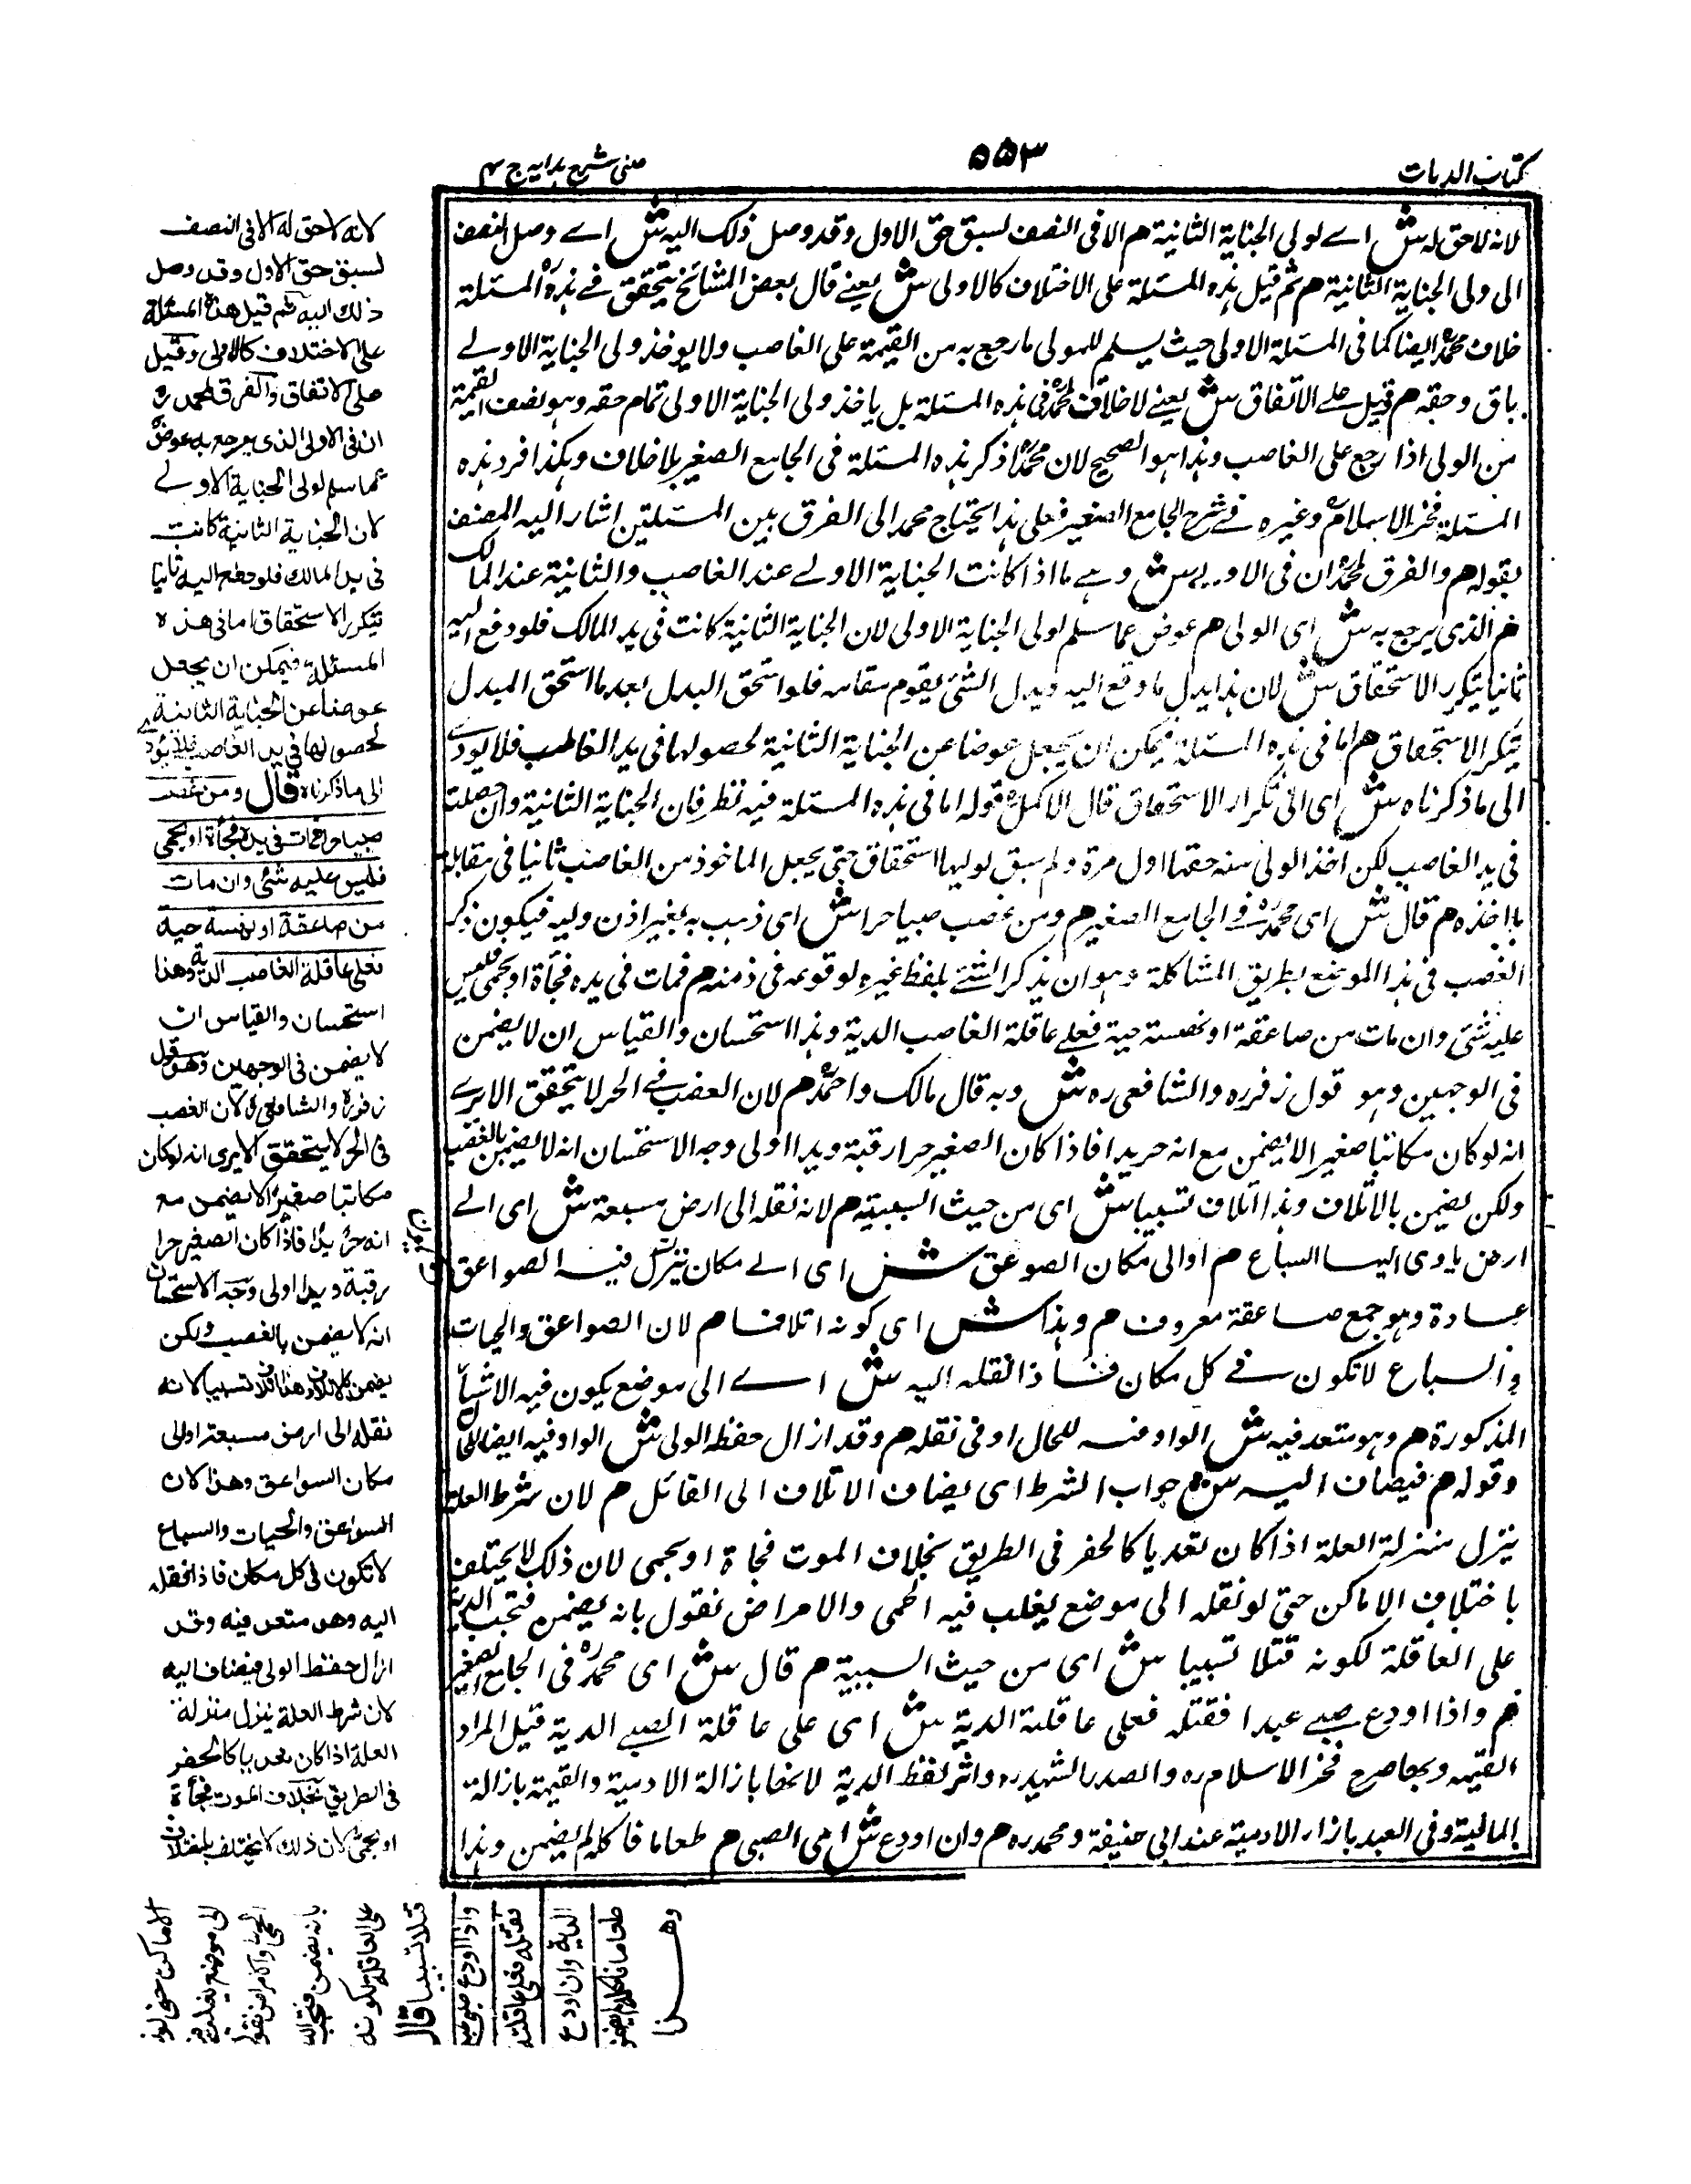 كتاب الديات
٥٥٣
عینی شرح ہدایہ ج ۴
لانہ لاحق لہ ش اے لولی الجنایة الثانیة م الا فی النصف لسبق حق الاول وقد وصل ذلک الیہ ش اے وصل النصف
الی ولی الجنایة الثانیة م ثم قیل ہذہ المسئلة علی الاختلاف کالاولی ش یعنے قال بعض المشائخ یتحقق فے ہذہ المسئلة
خلاف محمدؒ ایضا کما فی المسئلة الاولی حیث یسلم للمولی مارجع بہ من القیمة علی الغاصب ولا یوخذ ولی الجنایة الاولے
باق وحقہ م قیل علے الاتفاق ش یعنے لا خلاف لمحمدؒ فی ہذہ المسئلة بل یاخذ ولی الجنایة الاولی تمام حقہ وہو نصف القیمة
من الولی اذا رجع علی الغاصب وہذا ہو الصحیح لان محمدؒا ذکر ہذہ المسئلة فی الجامع الصغیر بلا خلاف وہکذا افرد ہذہ
المسئلة فخر الاسلامؒ وغیرہ فے شرح الجامع الصغیر فعلی ہذا یحتاج محمد الی الفرق بین المسئلتین اشار الیہ المصنف
بقولہ م والفرق لمحمدؒ ان فی الاولی ش وہے ما اذا کانت الجنایة الاولے عند الغاصب والثانیة عند المالک
م الذی یرجع بہ ش ای الولی م عوض عما سلم لولی الجنایة الاولی لان الجنایة الثانیة کانت فی ید المالک فلو دفع الیہ
ثانیا یتکرر الاستحقاق ش لان ہذا بدل ما دفع الیہ وبدل الشئ یقوم مقامہ فلو استحق البدل بعد ما استحق المبدل
یتکرر الاستحقاق م اما فی ہذہ المسئلة فیمکن ان یجعل عوضا عن الجنایة الثانیة لحصولہا فی ید الغاصب فلا یودے
الی ما ذکرناہ ش ای الی تکرار الاستحقاق قال الاکملؒ قولہ اما فی ہذہ المسئلة فیہ نظر فان الجنایة الثانیة وان حصلت
فی ید الغاصب لکن اخذ الولی منہ حقہا اول مرة ولم یسبق لولیہا استحقاق حتی یجعل الماخوذ من الغاصب ثانیا فی مقابلة
ما اخذہ م قال ش ای محمدؒ فی الجامع الصغیر م ومن غصب صبیا حرا ش ای ذہب بہ بغیر اذن ولیہ فیکون ذکر
الغصب فی ہذا الموضع بطریق المشاکلة وہو ان یذکر الشئے بلفظ غیرہ لوقوعہ فی ذمنہ م فمات فی یدہ فجأة او بحمی فلیس
علیہ شئ وان مات من صاعقة او نہسة حیة فعلے عاقلة الغاصب الدیة وہذا استحسان والقیاس ان لا یضمن
فی الوجہین وہو قول زفرؒ والشافعی رہ ش وبہ قال مالک واحمدؒ م لان الغصب فے الحر لا یتحقق الا یرے
انہ لو کان مکاتبا صغیرا لا یضمن مع انہ حر یدا فاذا کان الصغیر حرا رقبة ویدا اولی وجہ الاستحسان انہ لا یضمن بالغصب
ولکن یضمن بالاتلاف وہذا اتلاف تسبیبا ش ای من حیث السببیة م لانہ نقلہ الی ارض مسبعة ش ای الے
ارض یاوی الیہا السباع م او الی مکان الصوعق ش ای الے مکان ینزل فیہ الصواعق
عادة وہو جمع صاعقة معروف م وہذا ش ای کونہ اتلافا م لان الصواعق والحیات
والسباع لا تکون فے کل مکان فاذا نقلہ الیہ ش اے الی موضع یکون فیہ الاشیاء
المذکورة م وہو متعد فیہ ش الواو فیہ للحال او فی نقلہ م وقد ازال حفظ الولی ش الواو فیہ ایضا للحال
وقولہ م فیضاف الیہ ش جواب الشرط ای یضاف الاتلاف الی القائل م لان شرط العلة
ینزل منزلة العلة اذا کان تعدیا کالحفر فی الطریق بخلاف الموت فجاة او بحمی لان ذلک لا یختلف
باختلاف الاماکن حتی لو نقلہ الی موضع یغلب فیہ الحمی والامراض نقول بانہ یضمن فتجب الدیة
علی العاقلة لکونہ قتلا تسبیبا ش ای من حیث السببیة م قال ش ای محمدؒ فی الجامع الصغیر
م واذا اودع صبے عبدا فقتلہ فعلی عاقلتہ الدیة ش ای علی عاقلة الصبے الدیة قیل المراد
القیمة وبہ صرح فخر الاسلام رہ والصدر الشہید رہ واثر لفظ الدیة لانہا بازالة الادمیة والقیمة بازالة
المالیة وفی العبد بازاء الادمیة عند ابی حنیفة ومحمد رہ م وان اودع ش ای الصبی م طعاما فاکلہ لم یضمن وہذا
لانه لاحق له الا فی النصف
لسبق حق الاول وقد وصل
ذلك الیه ثم قیل هذه المسئلة
علی الاختلاف کالاولی وقیل
علی الاتفاق والفرق لمحمد رہ
ان فی الاولی الذی یرجع به عوض
عما سلم لولی الجنایة الاولے
لان الجنایة الثانیة کانت
فی ید المالك فلو دفع الیه ثانیا
یتکرر الاستحقاق اما فی هذه
المسئلة فیمکن ان یجعل
عوضا عن الجنایة الثانیة
لحصولها فی ید الغاصب فلا یؤدی
الی ما ذکرناه قال ومن غصب
صبیا حرا فمات فی یده فجأة او بحمی
فلیس علیه شئ وان مات
من صاعقة او نهسة حیة
فعلی عاقلة الغاصب الدیة وهذا
استحسان والقیاس ان
لا یضمن فی الوجهین وهو قول
زفر رہ والشافعی رہ لان الغصب
فی الحر لا یتحقق الا یری انه لو کان
مکاتبا صغیرا لا یضمن مع
انه حر یدا فاذا کان الصغیر حرا
رقبة ویدا اولی وجه الاستحسان
انه لا یضمن بالغصب ولکن
یضمن بالاتلاف وهذا اتلاف تسبیبا لانه
نقله الی ارض مسبعة او الی
مکان السواعق وهذا لان
السواعق والحیات والسباع
لا تکون فی کل مکان فاذا نقله
الیه وهو متعد فیه وقد
ازال حفظ الولی فیضاف الیه
لان شرط العلة ینزل منزلة
العلة اذا کان تعدیا کالحفر
فی الطریق بخلاف الموت فجأة
او بحمی لان ذلك لا یختلف باختلاف
الاماکن حتی لو نقله
الی موضع یغلب فیه
الحمی والامراض نقول
بانه یضمن فتجب الدیة
علی العاقلة لکونه
قتلا تسبیبا قال
واذا اودع صبی عبدا
فقتله فعلی عاقلته
الدیة وان اودع
طعاما فاکله لم یضمن
وهذا